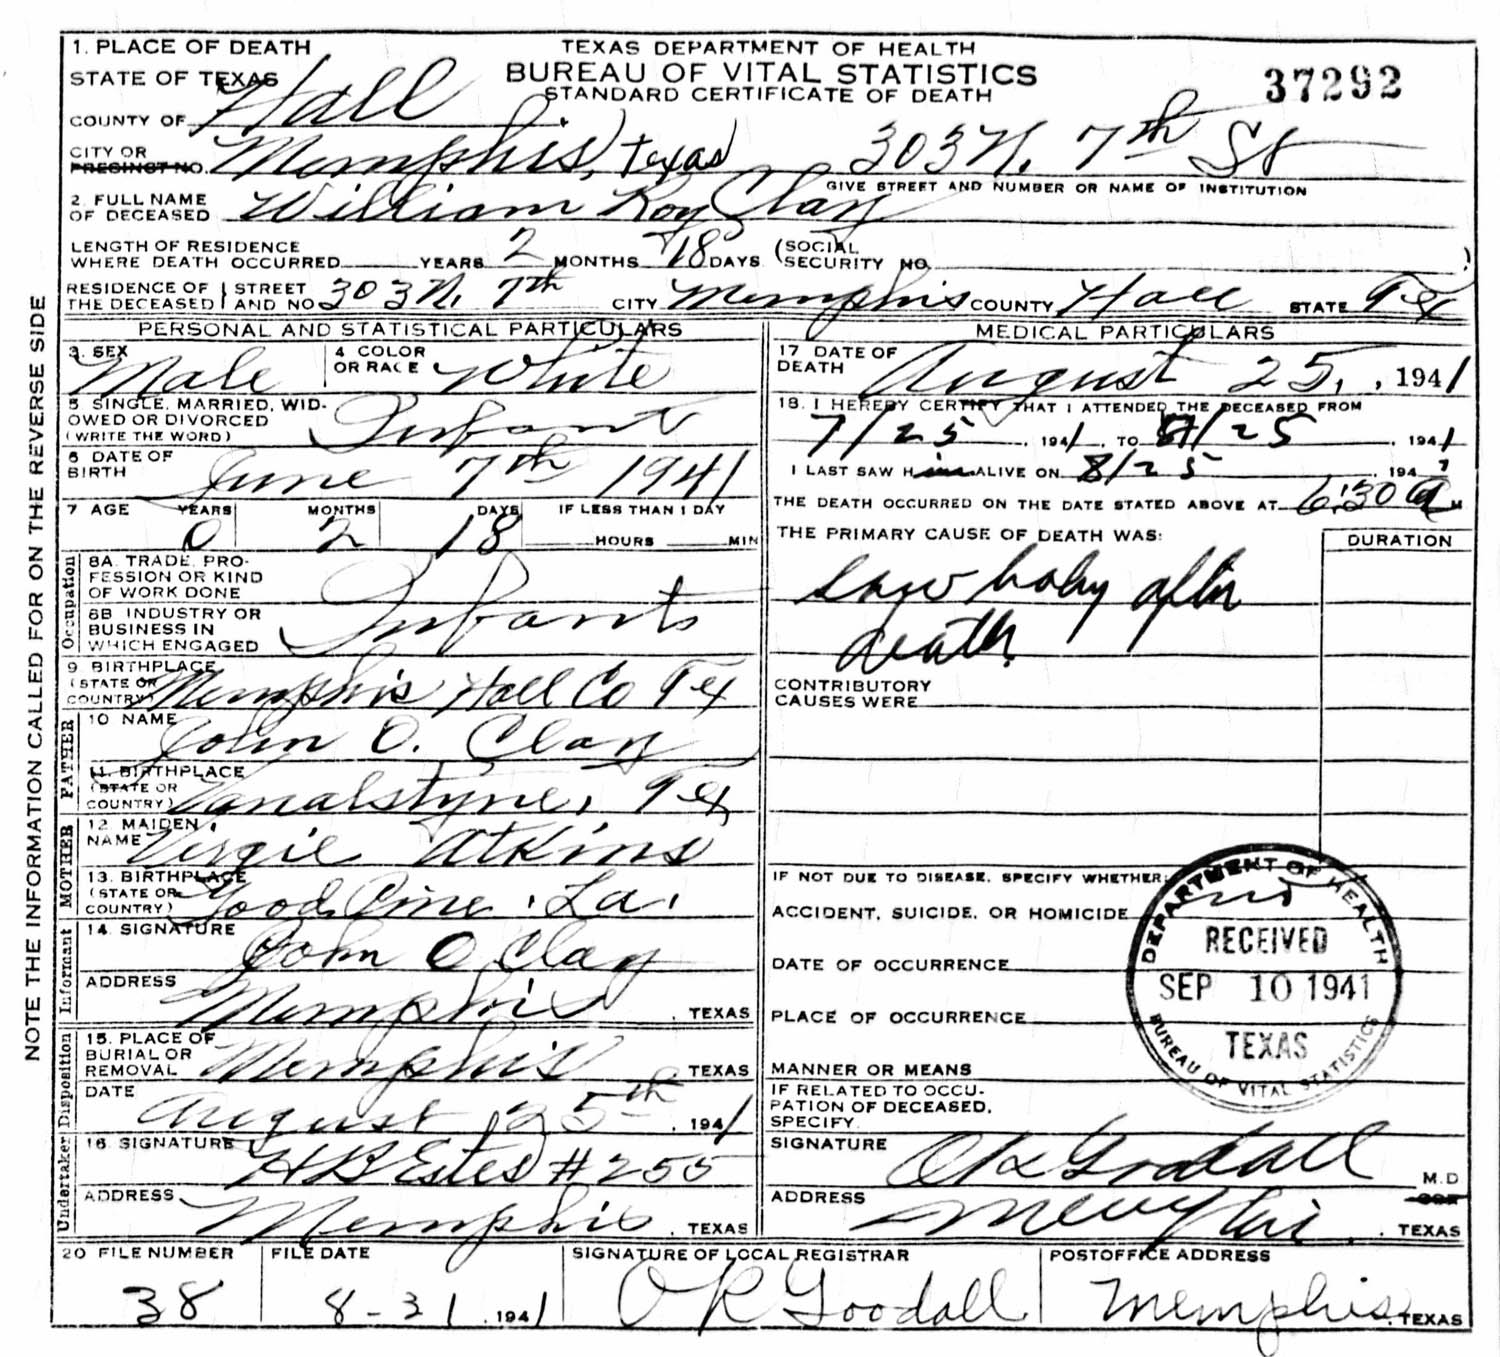 1. PLACE OF DEATH
TEXAS DEPARTMENT OF HEALTH
STATE OF TEXAS
BUREAU OF VITAL STATISTICS
STANDARD CERTIFICATE OF DEATH
37292
COUNTY OF Hall
CITY OR PRECINCT NO. Memphis, Texas 303 N. 7th St
GIVE STREET AND NUMBER OR NAME OF INSTITUTION
2. FULL NAME OF DECEASED William Roy Clay
LENGTH OF RESIDENCE WHERE DEATH OCCURRED YEARS 2 MONTHS 18 DAYS (SOCIAL SECURITY NO. )
RESIDENCE OF THE DECEASED STREET AND NO. 303 N. 7th CITY Memphis COUNTY Hall STATE Tex
PERSONAL AND STATISTICAL PARTICULARS
3. SEX Male
4 COLOR OR RACE White
5 SINGLE, MARRIED, WIDOWED OR DIVORCED (WRITE THE WORD) Infant
6 DATE OF BIRTH June 7th 1941
7 AGE YEARS MONTHS DAYS IF LESS THAN 1 DAY
0 2 18 HOURS MIN
Occupation
8A. TRADE, PROFESSION OR KIND OF WORK DONE
8B INDUSTRY OR BUSINESS IN WHICH ENGAGED
Infants
9 BIRTHPLACE (STATE OR COUNTRY) Memphis Hall Co Tex
FATHER
10 NAME John O. Clay
11. BIRTHPLACE (STATE OR COUNTRY) Vanalstyne, Tex
MOTHER
12. MAIDEN NAME Virgie Atkins
13. BIRTHPLACE (STATE OR COUNTRY) Good Pine, La.
Informant
14. SIGNATURE John O Clay
ADDRESS Memphis, TEXAS
Disposition
15. PLACE OF BURIAL OR REMOVAL Memphis TEXAS
DATE August 25th, 1941
Undertaker
16. SIGNATURE H B Estes #255
ADDRESS Memphis, TEXAS
MEDICAL PARTICULARS
17 DATE OF DEATH August 25, , 1941
18. I HEREBY CERTIFY THAT I ATTENDED THE DECEASED FROM
7/25, 1941, TO 8/25, 1941
I LAST SAW H im ALIVE ON 8/25, 194
THE DEATH OCCURRED ON THE DATE STATED ABOVE AT 6:30 a M
THE PRIMARY CAUSE OF DEATH WAS:
DURATION
saw baby after
death
CONTRIBUTORY CAUSES WERE
IF NOT DUE TO DISEASE, SPECIFY WHETHER:
ACCIDENT, SUICIDE, OR HOMICIDE
DATE OF OCCURRENCE
PLACE OF OCCURRENCE
MANNER OR MEANS
IF RELATED TO OCCUPATION OF DECEASED, SPECIFY
SIGNATURE O R Goodall M.D
ADDRESS Memphis, TEXAS
DEPARTMENT OF HEALTH
RECEIVED
SEP 10 1941
TEXAS
BUREAU OF VITAL STATISTICS
20 FILE NUMBER 38
FILE DATE 8-31, 1941
SIGNATURE OF LOCAL REGISTRAR O R Goodall
POSTOFFICE ADDRESS Memphis, TEXAS
NOTE THE INFORMATION CALLED FOR ON THE REVERSE SIDE